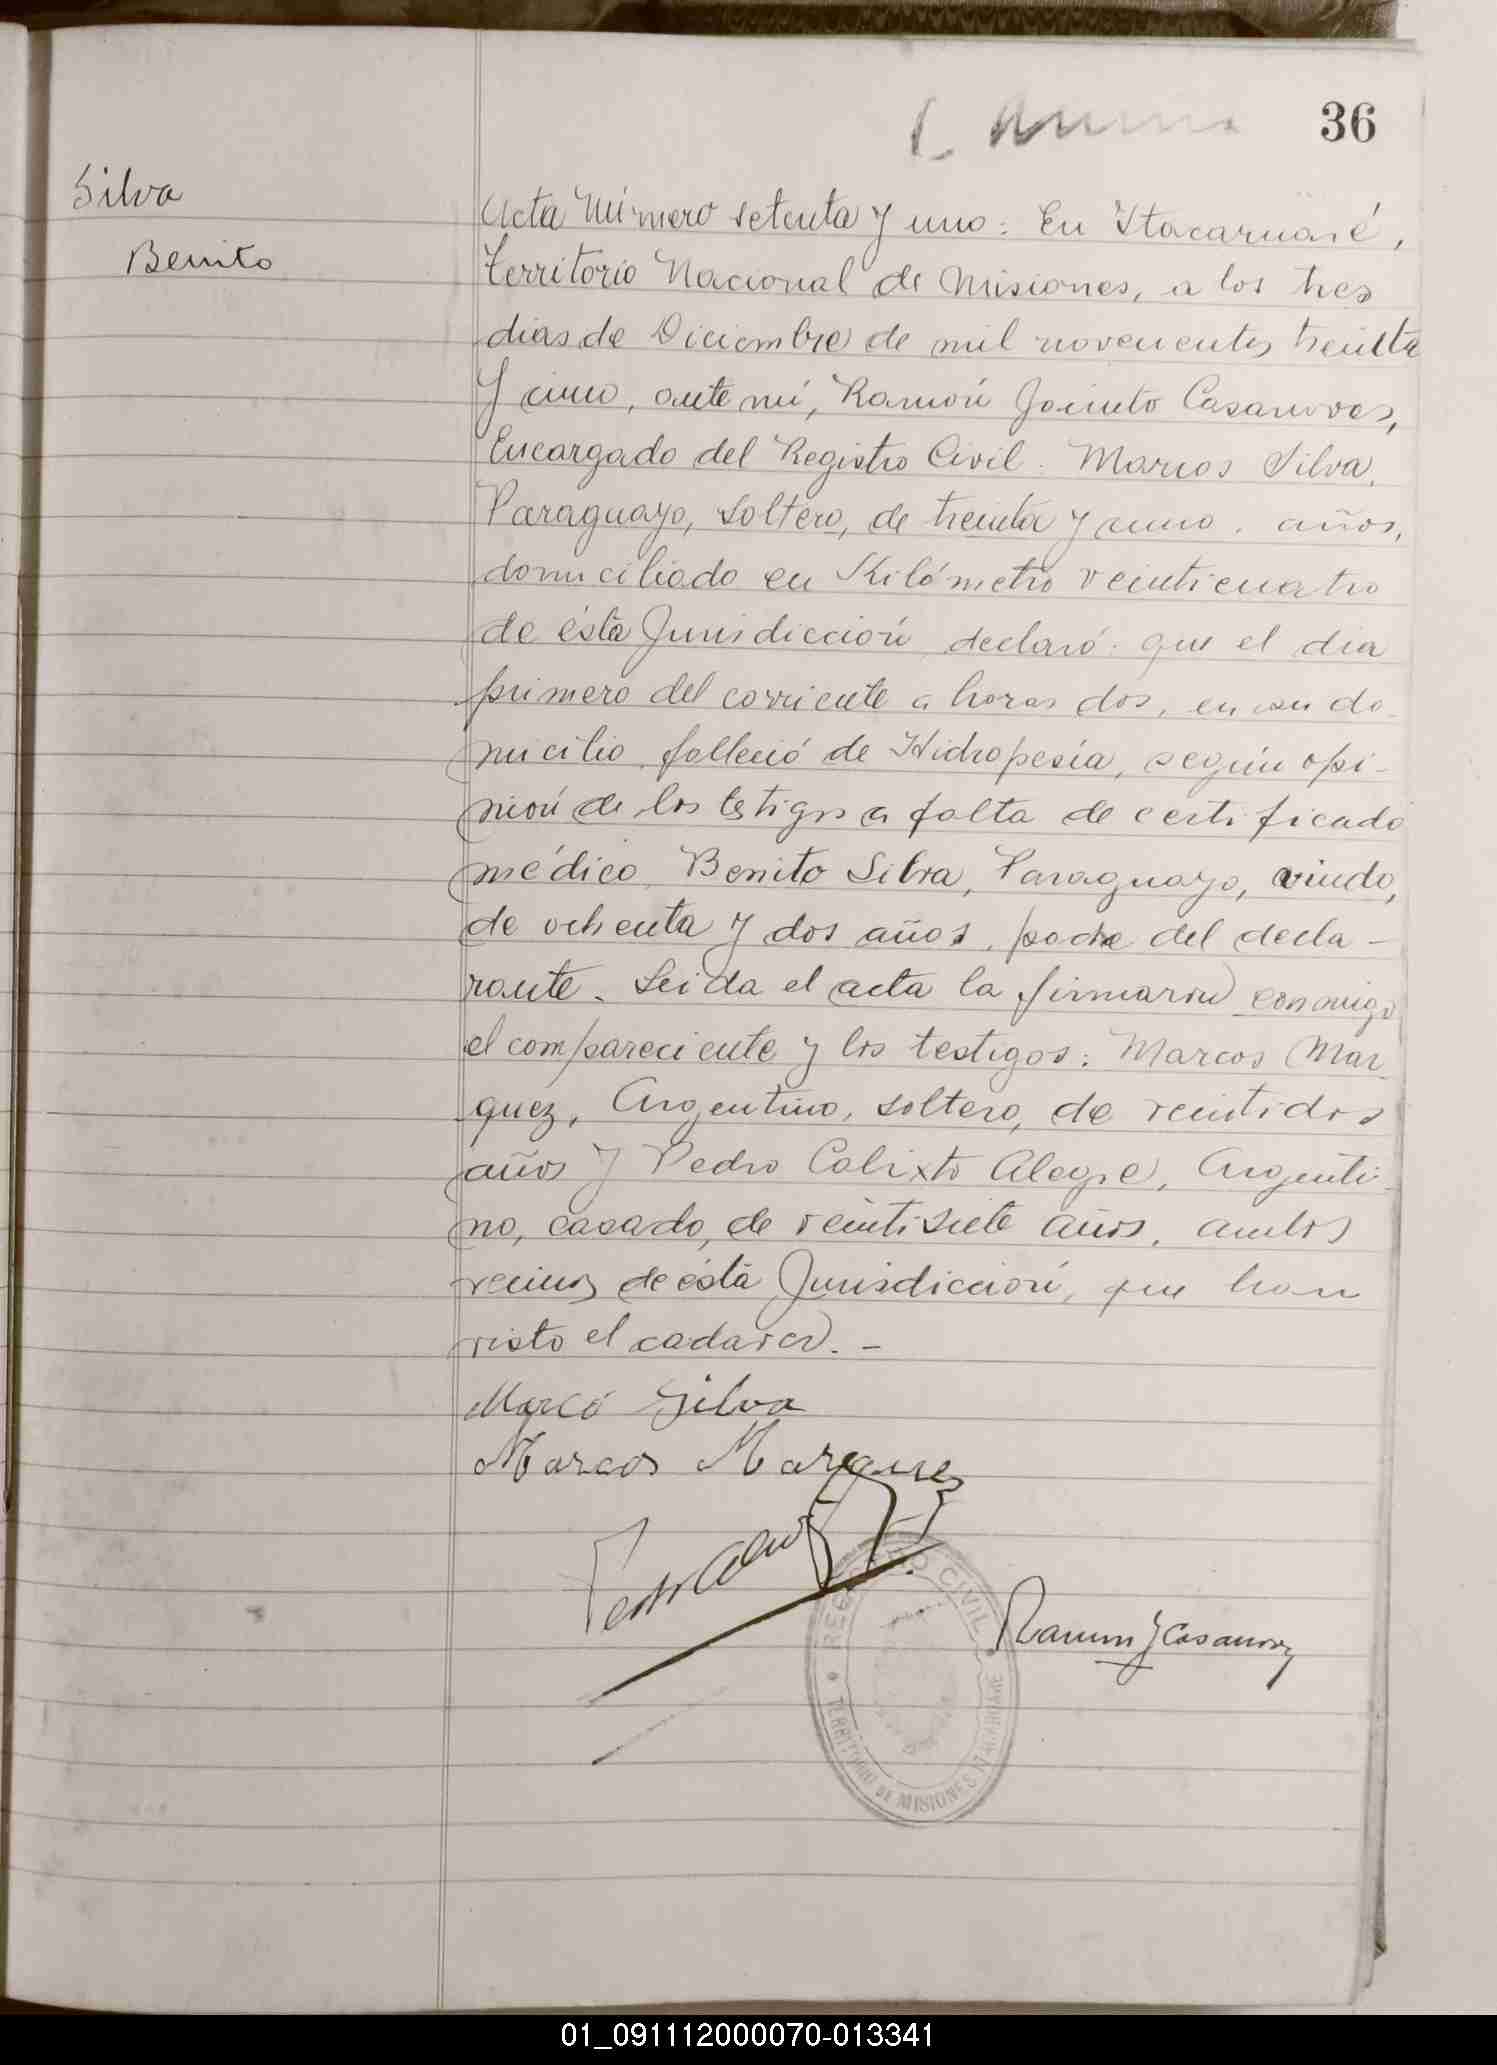 36
Silva
Benito
Acta Número setenta y uno: En Itacaruaré,
territorio Nacional de Misiones, a los tres
dias de Diciembre de mil novecientos treinta
y cinco, ante mí, Ramón Jacinto Casanova,
Encargado del Registro Civil: Marcos Silva,
Paraguayo, soltero, de treinta y cinco años,
domiciliado en Kilómetro veinticuatro
de ésta Jurisdicción declaró: que el dia
primero del corriente a horas dos, en su do-
micilio falleció de Hidropesía, según opi-
nión de los testigos a falta de certificado
médico Benito Silva, Paraguayo, viudo,
de ochenta y dos años, padre del decla-
rante. Leida el acta la firmaron conmigo
el compareciente y los testigos: Marcos Mar-
quez, Argentino, soltero, de veintidos
años y Pedro Calixto Alegre, Argenti-
no, casado, de veintisiete años, ambos
vecinos de ésta Jurisdicción, que han
visto el cadaver. -
Marcó Silva
Marcos Marquez
Ramon J Casanova
REGISTRO CIVIL
TERRITORIO DE MISIONES ITACARUARE
01_091112000070-013341